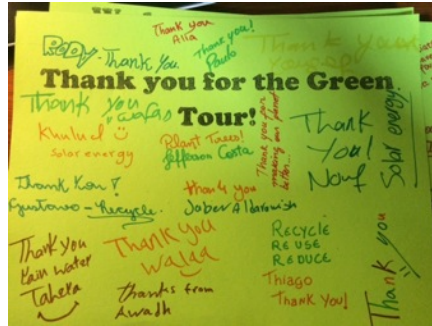 Thank you
Alia
Rody. Thank You
Thank you!
Paulo
Thank you for the Green
Tour!
Thank you
Khulud
Solar energy
Plant Trees!
Jefferson Costa
Thank you for
making our planet
better...
Thank
You!
Nouf
Solar energy.
Thank You!
Gustavo - Recycle.
Thank you
Jaber Aldarawish
Thank you
Rain water
Tahera
Thank you
Walaa
thanks from
Awadh
RECYCLE
RE USE
REDUCE
Thiago
Thank You!
Thank you